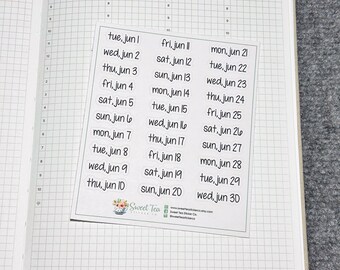 tue, jun 1
wed, jun 2
thu, jun 3
fri, jun 4
sat, jun 5
sun, jun 6
mon, jun 7
tue, jun 8
wed, jun 9
thu, jun 10
fri, jun 11
sat, jun 12
sun, jun 13
mon, jun 14
tue, jun 15
wed, jun 16
thu, jun 17
fri, jun 18
sat, jun 19
sun, jun 20
mon, jun 21
tue, jun 22
wed, jun 23
thu, jun 24
fri, jun 25
sat, jun 26
sun, jun 27
mon, jun 28
tue, jun 29
wed, jun 30
Sweet Tea